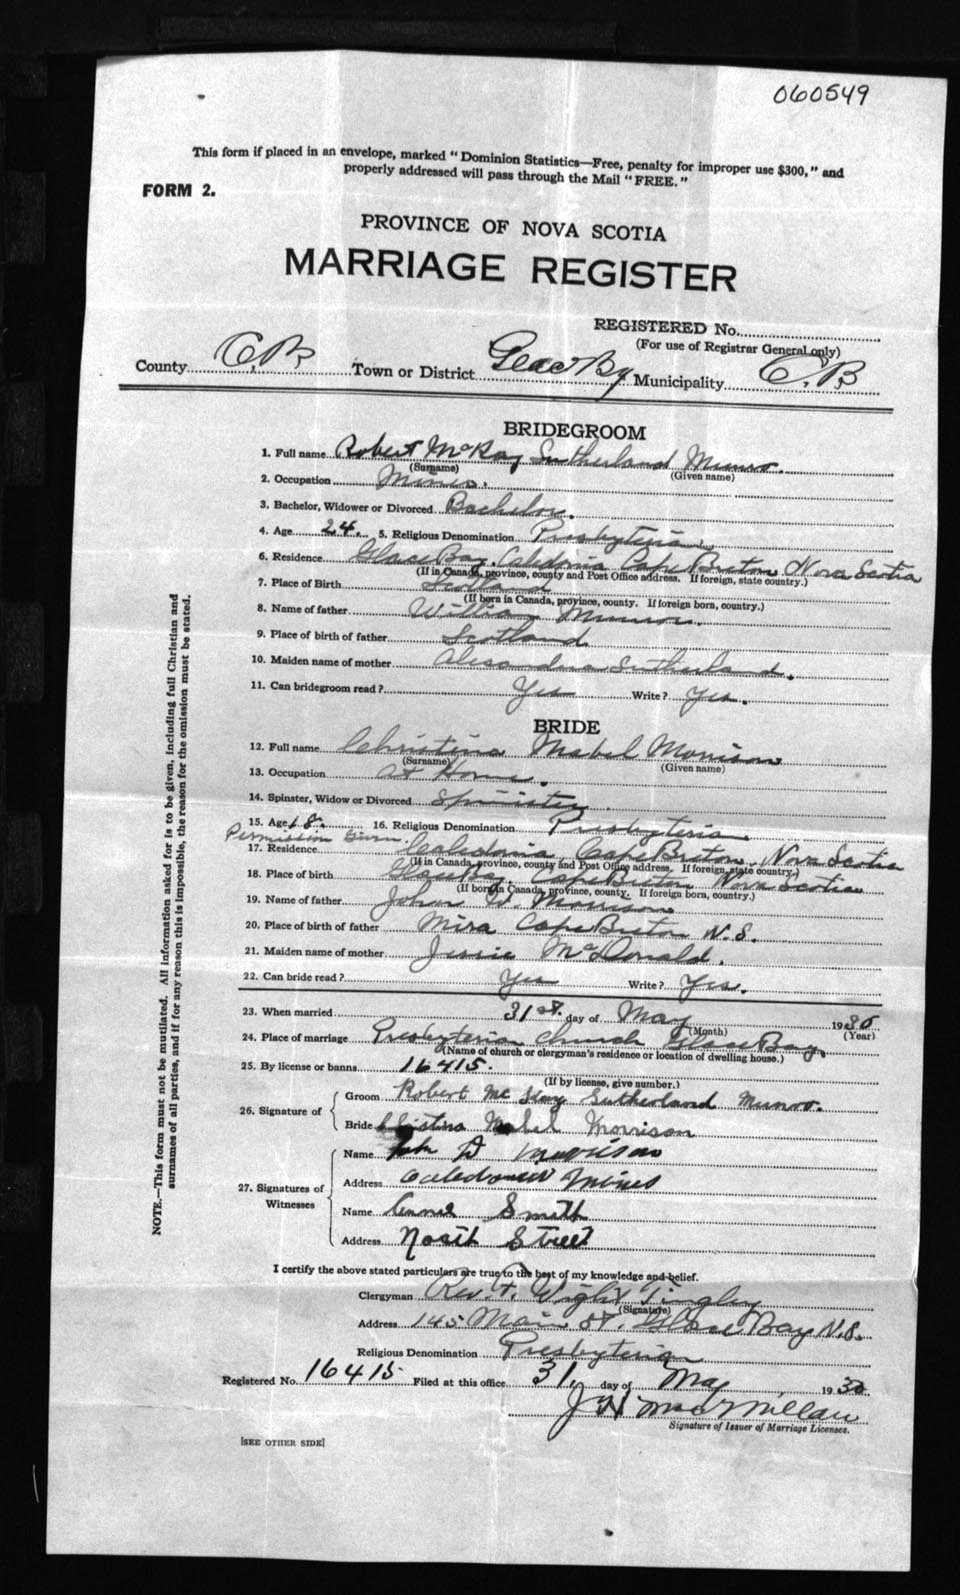 060549
This form if placed in an envelope, marked "Dominion Statistics—Free, penalty for improper use $300," and
properly addressed will pass through the Mail "FREE."
FORM 2.
PROVINCE OF NOVA SCOTIA
MARRIAGE REGISTER
REGISTERED No.
(For use of Registrar General only)
County C.B. Town or District Glace Bay Municipality C.B.
BRIDEGROOM
1. Full name Robert McKay Sutherland Munro.
(Surname) (Given name)
2. Occupation Miner.
3. Bachelor, Widower or Divorced Bachelor.
4. Age 24. 5. Religious Denomination Presbyterian.
6. Residence Glace Bay. Caledonia Cape Breton Nova Scotia
(If in Canada, province, county and Post Office address. If foreign, state country.)
7. Place of Birth Scotland
(If born in Canada, province, county. If foreign born, country.)
8. Name of father William Munro.
9. Place of birth of father Scotland
10. Maiden name of mother Alexandria Sutherland.
11. Can bridegroom read? Yes Write? Yes.
BRIDE
12. Full name Christina Mabel Morrison
(Surname) (Given name)
13. Occupation At Home.
14. Spinster, Widow or Divorced Spinister.
15. Age 18. 16. Religious Denomination Presbyterian
Permission Given.
17. Residence Caledonia Cape Breton. Nova Scotia
(If in Canada, province, county and Post Office address. If foreign, state country.)
18. Place of birth Glace Bay. Cape Breton Nova Scotia
(If born in Canada, province, county. If foreign born, country.)
19. Name of father John D. Morrison
20. Place of birth of father Mira Cape Breton N.S.
21. Maiden name of mother Jessie McDonald.
22. Can bride read? Yes Write? Yes.
23. When married 31st. day of May 1930
(Month) (Year)
24. Place of marriage Presbyterian Church Glace Bay.
(Name of church or clergyman's residence or location of dwelling house.)
25. By license or banns 16415.
(If by license, give number.)
26. Signature of Groom Robert Mc Kay Sutherland Munro.
Bride Christina Mabel Morrison
27. Signatures of Witnesses
Name John D Morrison
Address Caledonia Mines
Name Smith
Address North Street
I certify the above stated particulars are true to the best of my knowledge and belief.
Clergyman Rev. F. Wight Tingley
(Signature)
Address 145 Main St. Glace Bay N.S.
Religious Denomination Presbyterian
Registered No. 16415 Filed at this office 31, day of May 1930
J H MacMillan
Signature of Issuer of Marriage Licenses.
[SEE OTHER SIDE]
NOTE.—This form must not be mutilated. All information asked for is to be given, including full Christian and
surnames of all parties, and if for any reason this is impossible, the reason for the omission must be stated.